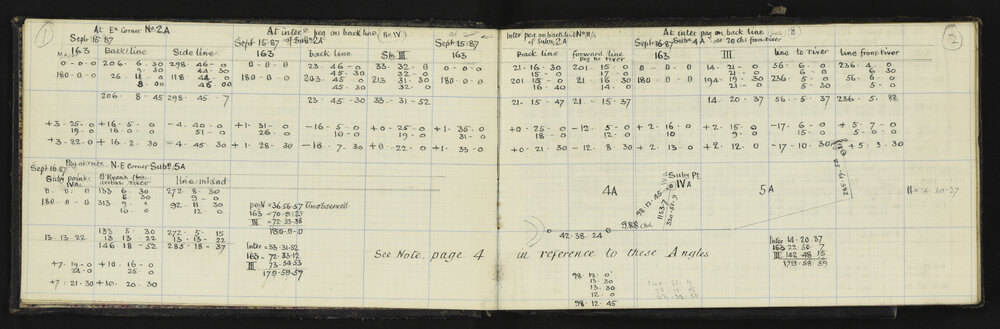 1
At En corner No 2A
Sept 15.87
163 Back line Side line
0-0-0 206. 6. 30 298. 46-0
9-30 44.30
180-0-0 26. 11. 0 118-44-0
8-00 46.00
206. 8. 45 298. 45. 7
+3-25-0 +16-5-0 -4.40-0
19.0 16.0.0 51-0
+3-22-0 +16-2.30 -4-45.30
Sept 16.87
N.E Corner Subn 5A
Suby point IVA
line inland
0. 0. 0 133. 6. 30 272. 8. 30
6. 30 9-0
180-0-0 313. 9-0 92. 11. 30
10. 0 12. 0
133. 5. 30 272. 5. 15
13. 13. 22 13. 13. 22 13-13-22
146 18-52 285-18-37
+7. 19-0 +10-16-0
24.0 25 0
+7. 21.30 +10. 20. 30
At inter peg on back line (No IV)
of Subn 2A
Sept 15.87
163 back line Stn III
0-0-0 23. 46-0 33. 32-0
45. 30 32-0
180-0-0 203. 45-0 213. 31. 30
45. 30 32-0
23-45-30 33-31-52
+1.31-0 -16-5-0 +0-25-0
26.0 10-0 19.0
+1-28-30 -16. 7.30 +0-22.0
Sept 15.87
163
0-0-0
180-0-0
+1.35.0
31-0
+1-33.0
peg IV = 36.56.57 Unobserved
III = 72.33.38
180.0.0
Inter = 33.31.52
163 = 72.33.12
III = 73.54.53
179.59.57
See Note page 4 in reference to these Angles
2
Inter peg on back line No IIIA
of Subn 2A
back line forward line
peg nr river
21. 16. 30 201. 15-0
15-0 17-0
201. 15-0 21. 16.30
16.40 14.0
21. 15. 47 21-15.37
+0-25-0 -12. 5.0
18-0 12.0
+0-21.30 -12. 8 30
At inter peg on back line
Subn 4A at 20 chs from river
Sept 16.87
163 III line to river line from river
0-0-0 14-21-0 56-6-0 236.4-0
21-0 6-0 6 30
180-0-0 194-19.30 236.5-0 56-6.0
21-0 5-30 5-0
14. 20. 37 56-5.37 236.5. 22
+2-16-0 +2. 15-0 -17-6-0 +5-7-0
10 9-0 15-0 0-0
+2-13-0 +2.12.0 -17-10.30 +5.3.30
4A
Suby Pt
IVA
5A
98-12-45
1153.7
9.88 chs
42.38.24
II = 14.20.37
Inter 14.20.37
163 22 50 7
III 142 48 15
179.58.59
98-12.0
13-30
13-30
12.0
98-12.45